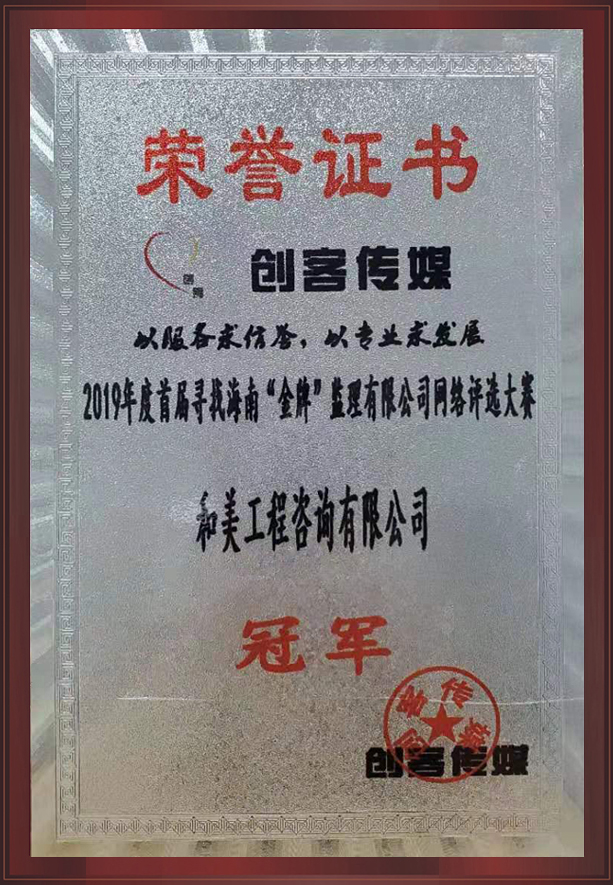 荣誉证书
创客传媒
以服务求信誉，以专业求发展
2019年度首届寻找海南“金牌”监理有限公司网络评选大赛
和美工程咨询有限公司
冠军
创客传媒